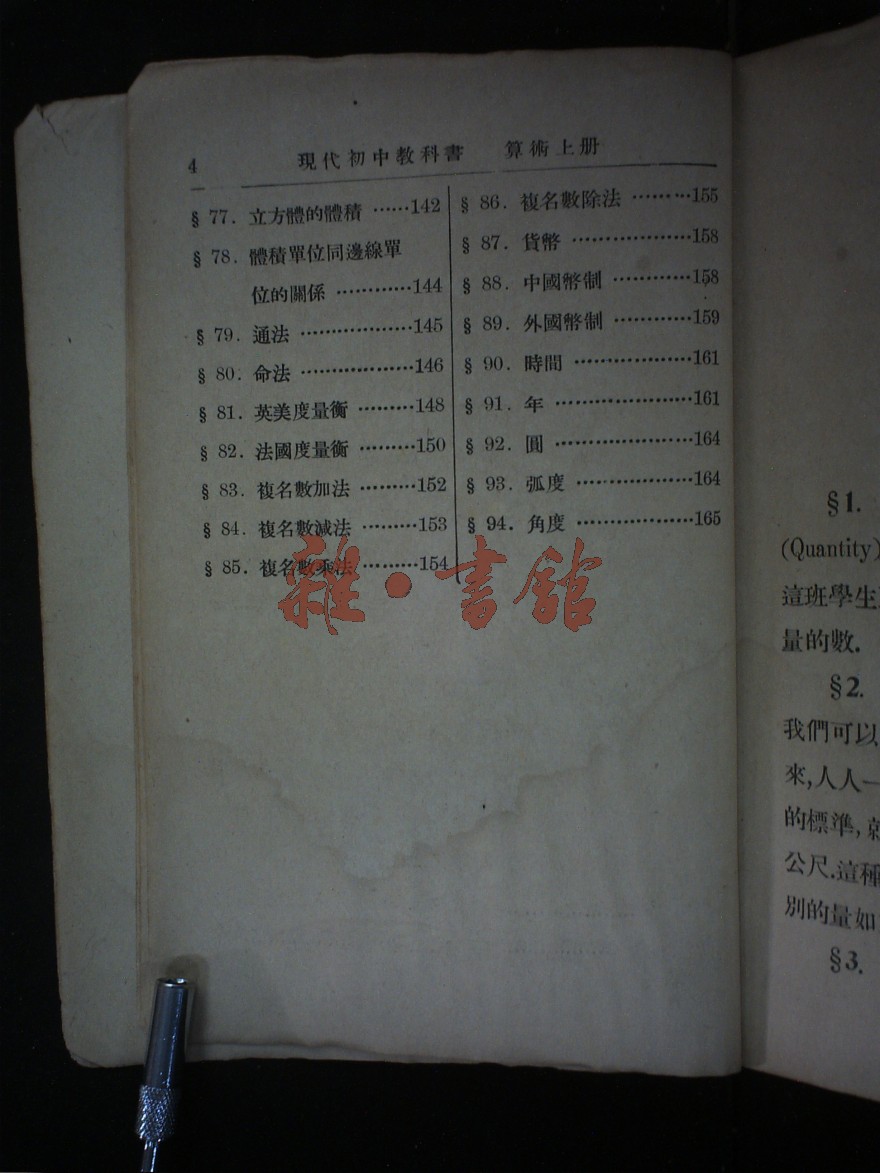 4 現代初中教科書 算術上册
§ 77. 立方體的體積 ……142
§ 78. 體積單位同邊線單
位的關係 …………144
§ 79. 通法 ………………145
§ 80. 命法 ………………146
§ 81. 英美度量衡 ………148
§ 82. 法國度量衡 ………150
§ 83. 複名數加法 ………152
§ 84. 複名數減法 ………153
§ 85. 複名數乘法 ………154
§ 86. 複名數除法 ………155
§ 87. 貨幣 ………………158
§ 88. 中國幣制 …………158
§ 89. 外國幣制 …………159
§ 90. 時間 ………………161
§ 91. 年 …………………161
§ 92. 圓 …………………164
§ 93. 弧度 ………………164
§ 94. 角度 ………………165
雜·書館
§1.
(Quantity)
這班學生
量的數.
§2.
我們可以
來,人人一
的標準,
公尺.這種
別的量如
§3.